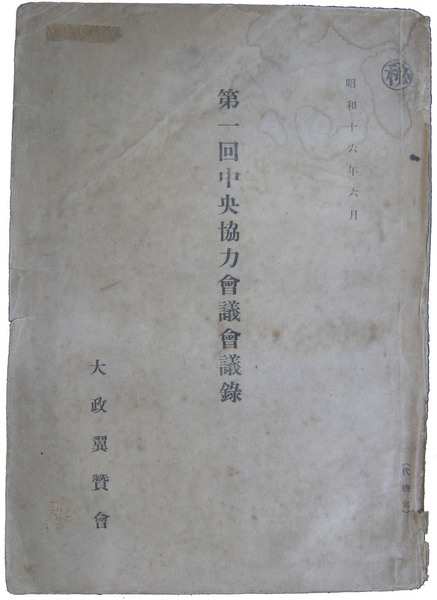 ㊙
昭和十六年六月
第一回中央協力會議會議錄
大政翼贊會
(代謄寫)